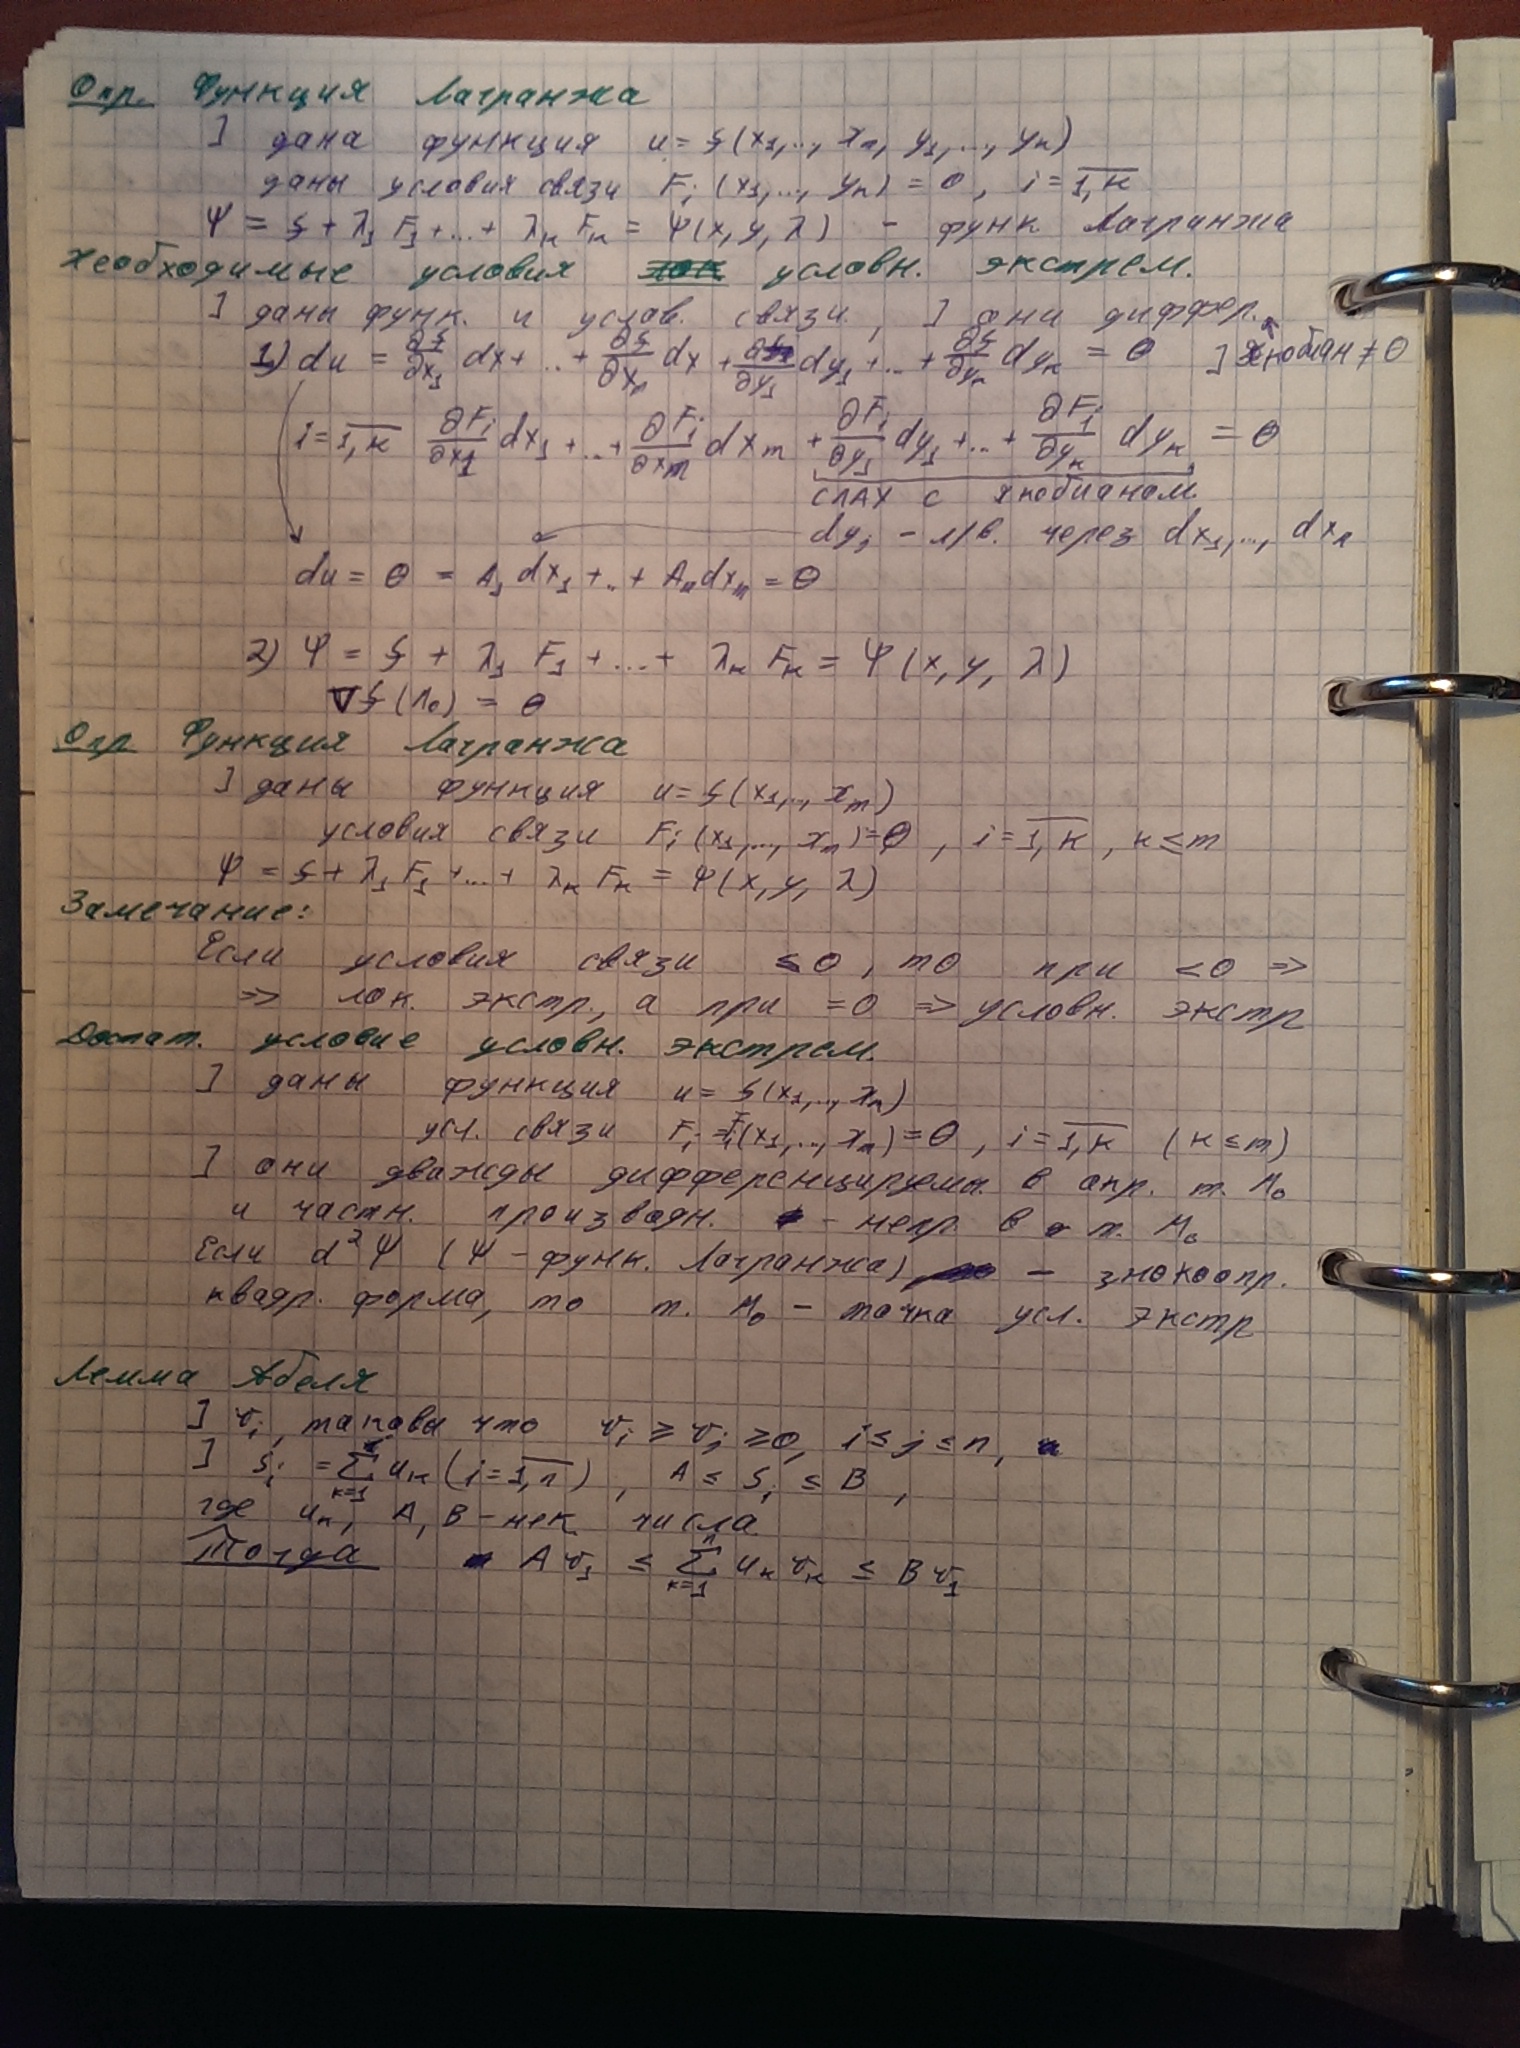 Опр. Функция Лагранжа
] дана функция u = f(x₁,.., xₙ, y₁,..., yₖ)
даны условия связи Fᵢ(x₁,..., yₖ) = 0, i = \overline{1,k}
Ψ = f + λ₁F₁ + ... + λₖFₖ = Ψ(x, y, λ) - функ Лагранжа
Необходимые условия условн. экстрем.
] даны функ. и услов. связи, ] они диффер.
1) du = ∂f/∂x₁ dx + .. + ∂f/∂xₙ dx + ∂f/∂y₁ dy₁ + .. + ∂f/∂yₖ dyₖ = 0 ] Якобиан ≠ 0
i = \overline{1,k} ∂Fᵢ/∂x₁ dx₁ + .. + ∂Fᵢ/∂xₘ dxₘ + ∂Fᵢ/∂y₁ dy₁ + .. + ∂Fᵢ/∂yₖ dyₖ = 0
СЛАУ с якобианом
dyⱼ - л/в. через dx₁,..., dxₙ
du = 0 = A₁dx₁ + .. + Aₘdxₘ = 0
2) Ψ = f + λ₁ F₁ + ... + λₖ Fₖ = Ψ(x, y, λ)
∇f(M₀) = 0
Опр Функция Лагранжа
] даны функция u = f(x₁,.., xₘ)
условия связи Fᵢ(x₁,..., xₘ) = 0, i = \overline{1,k}, k ≤ m
Ψ = f + λ₁F₁ + ... + λₖFₖ = Ψ(x, y, λ)
Замечание:
Если условия связи ≤ 0, то при < 0 ⇒
⇒ лок. экстр., а при = 0 ⇒ условн. экстр
Достат. условие условн. экстрем.
] даны функция u = f(x₁,.., xₙ)
усл. связи Fᵢ = Fᵢ(x₁,..., xₘ) = 0, i = \overline{1,k} (k ≤ m)
] они дважды дифференцируемы в окр. т. M₀
и частн. производн. - непр. в т. M₀
Если d²Ψ (Ψ - функ. Лагранжа) - знакоопр.
квадр. форма, то т. M₀ - точка усл. экстр
Лемма Абеля
] vᵢ, таковы что vᵢ ≥ vⱼ ≥ 0, i ≤ j ≤ n,
] Sᵢ = ∑ₖ₌₁ⁱ uₖ (i = \overline{1,n}), A ≤ Sᵢ ≤ B,
где uₖ, A, B - нек. числа
Тогда A v₁ ≤ ∑ₖ₌₁ⁿ uₖ vₖ ≤ B v₁